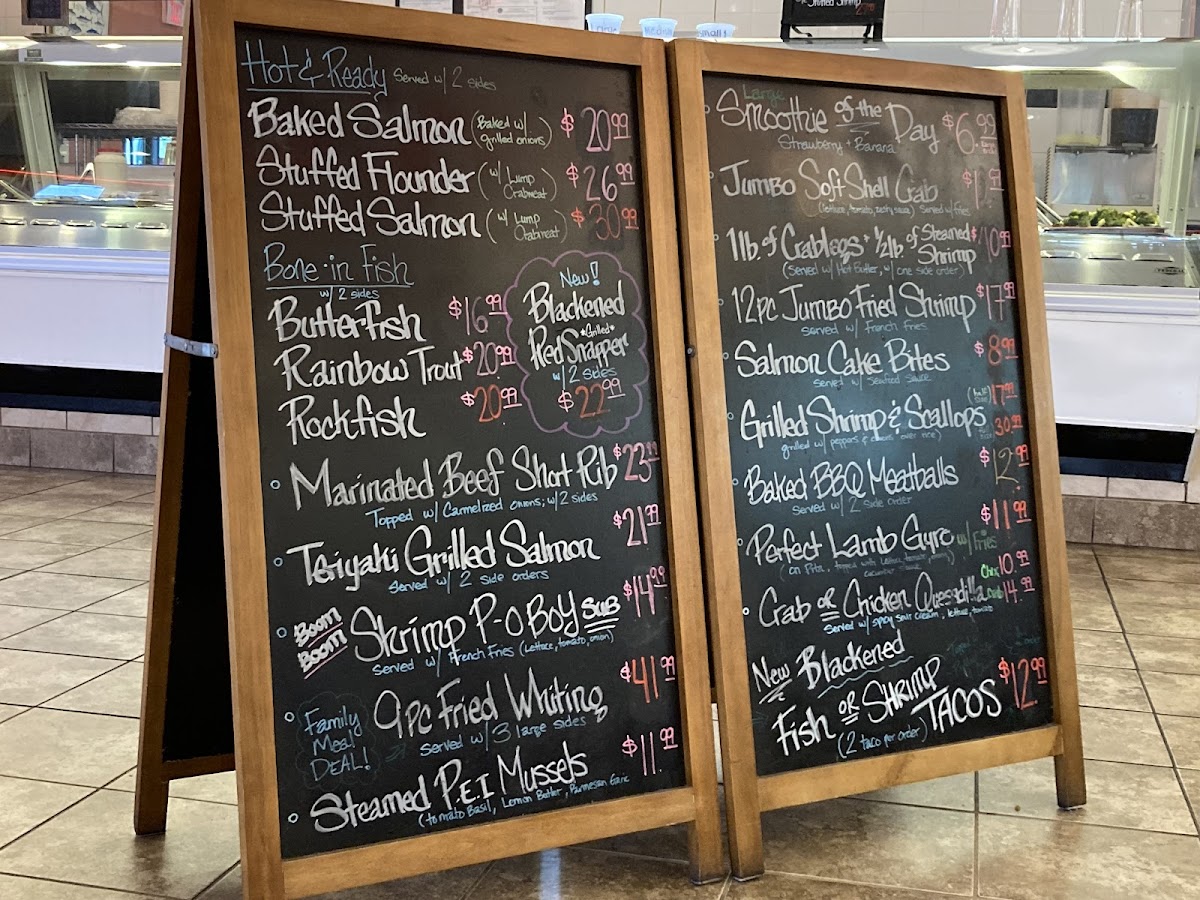 Hot & Ready Served w/ 2 sides
Baked Salmon (Baked w/ grilled onions) $20.99
Stuffed Flounder (w/ Lump Crabmeat) $26.99
Stuffed Salmon (w/ Lump Crabmeat) $30.99
Bone-in Fish
w/ 2 sides
Butterfish $16.99
Rainbow Trout $20.99
Rockfish $20.99
New!
Blackened
*Grilled*
Red Snapper
w/ 2 sides
$22.99
Marinated Beef Short Rib $23.99
Topped w/ Carmelized onions; w/ 2 sides
Teriyaki Grilled Salmon $21.99
Served w/ 2 side orders
Boom Boom Shrimp P-O BOY SUB $14.99
Served w/ French Fries (Lettuce, tomato, onion)
Family Meal DEAL!
9pc Fried Whiting $41.99
Served w/ 3 large sides
Steamed P.E.I Mussels $11.99
(tomato Basil, Lemon Butter, Parmesan Garlic
Large
Smoothie of the Day $6.99
Strawberry + Banana
Jumbo Soft Shell Crab
(lettuce, tomato, served w/ fries
1lb of Crablegs + 1/2 lb. of Steamed Shrimp
(Served w/ Hot Butter, w/ one side order)
12pc Jumbo Fried Shrimp $17.99
Served w/ French fries
Salmon Cake Bites $8.99
Served w/ Seafood Sauce
Grilled Shrimp & Scallops 17.99
30.99
grilled w/ peppers & onions over rice)
Baked BBQ Meatballs $12.99
Served w/ 2 side order
Perfect Lamb Gyro w/ Fries $11.99
(on Pita, topped with lettuce, tomato,
Crab or Chicken Quesadilla Chix 10.99
14.99
Served w/ spicy sour cream, lettuce, tomato
New Blackened
Fish or Shrimp TACOS $12.99
(2 taco per order)